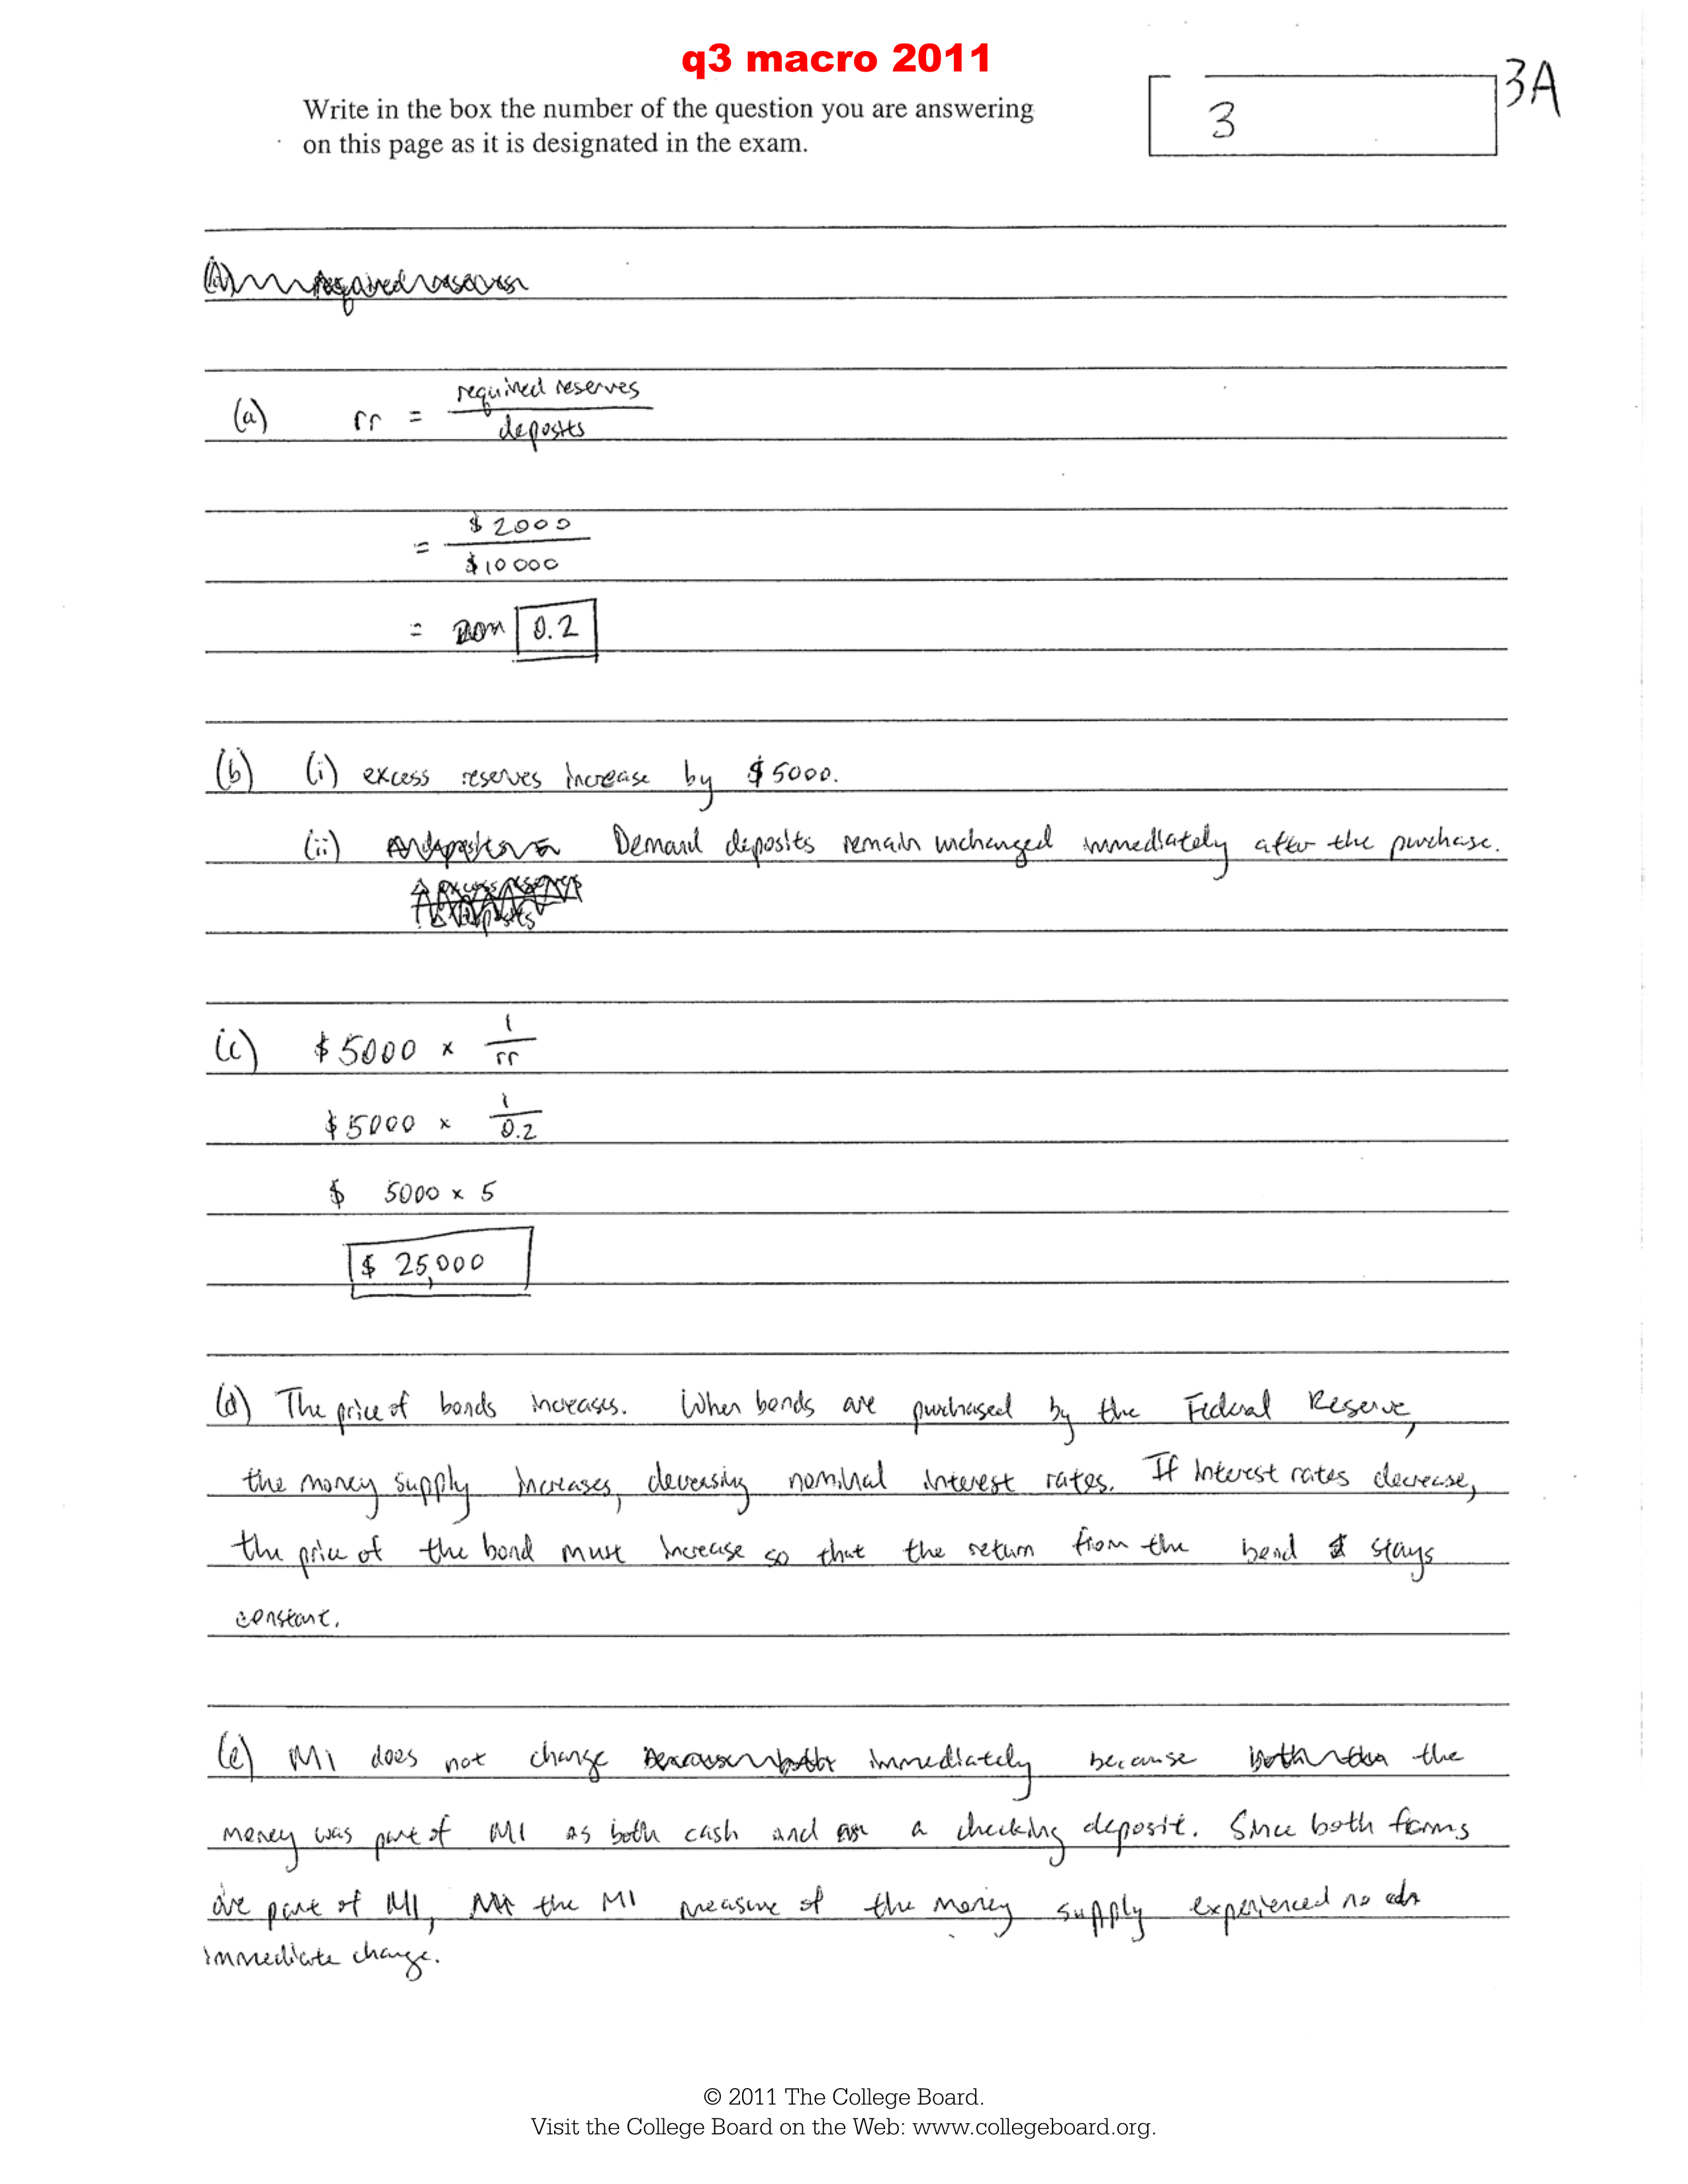 q3 macro 2011
3A
Write in the box the number of the question you are answering
on this page as it is designated in the exam.
3
required reserves
(a) rr = required reserves
deposits
= $ 2000
$ 10 000
= 0.2
(b) (i) excess reserves increase by $ 5000.
(ii) Demand deposits remain unchanged immediately after the purchase.
(c) $ 5000 x 1
rr
$ 5000 x 1
0.2
$ 5000 x 5
$ 25,000
(d) The price of bonds increases. When bonds are purchased by the Federal Reserve,
the money supply increases, decreasing nominal interest rates. If interest rates decrease,
the price of the bond must increase so that the return from the bond stays
constant.
(e) M1 does not change immediately because the
money was part of M1 as both cash and a checking deposit. Since both forms
are part of M1, the M1 measure of the money supply experienced no
immediate change.
© 2011 The College Board.
Visit the College Board on the Web: www.collegeboard.org.